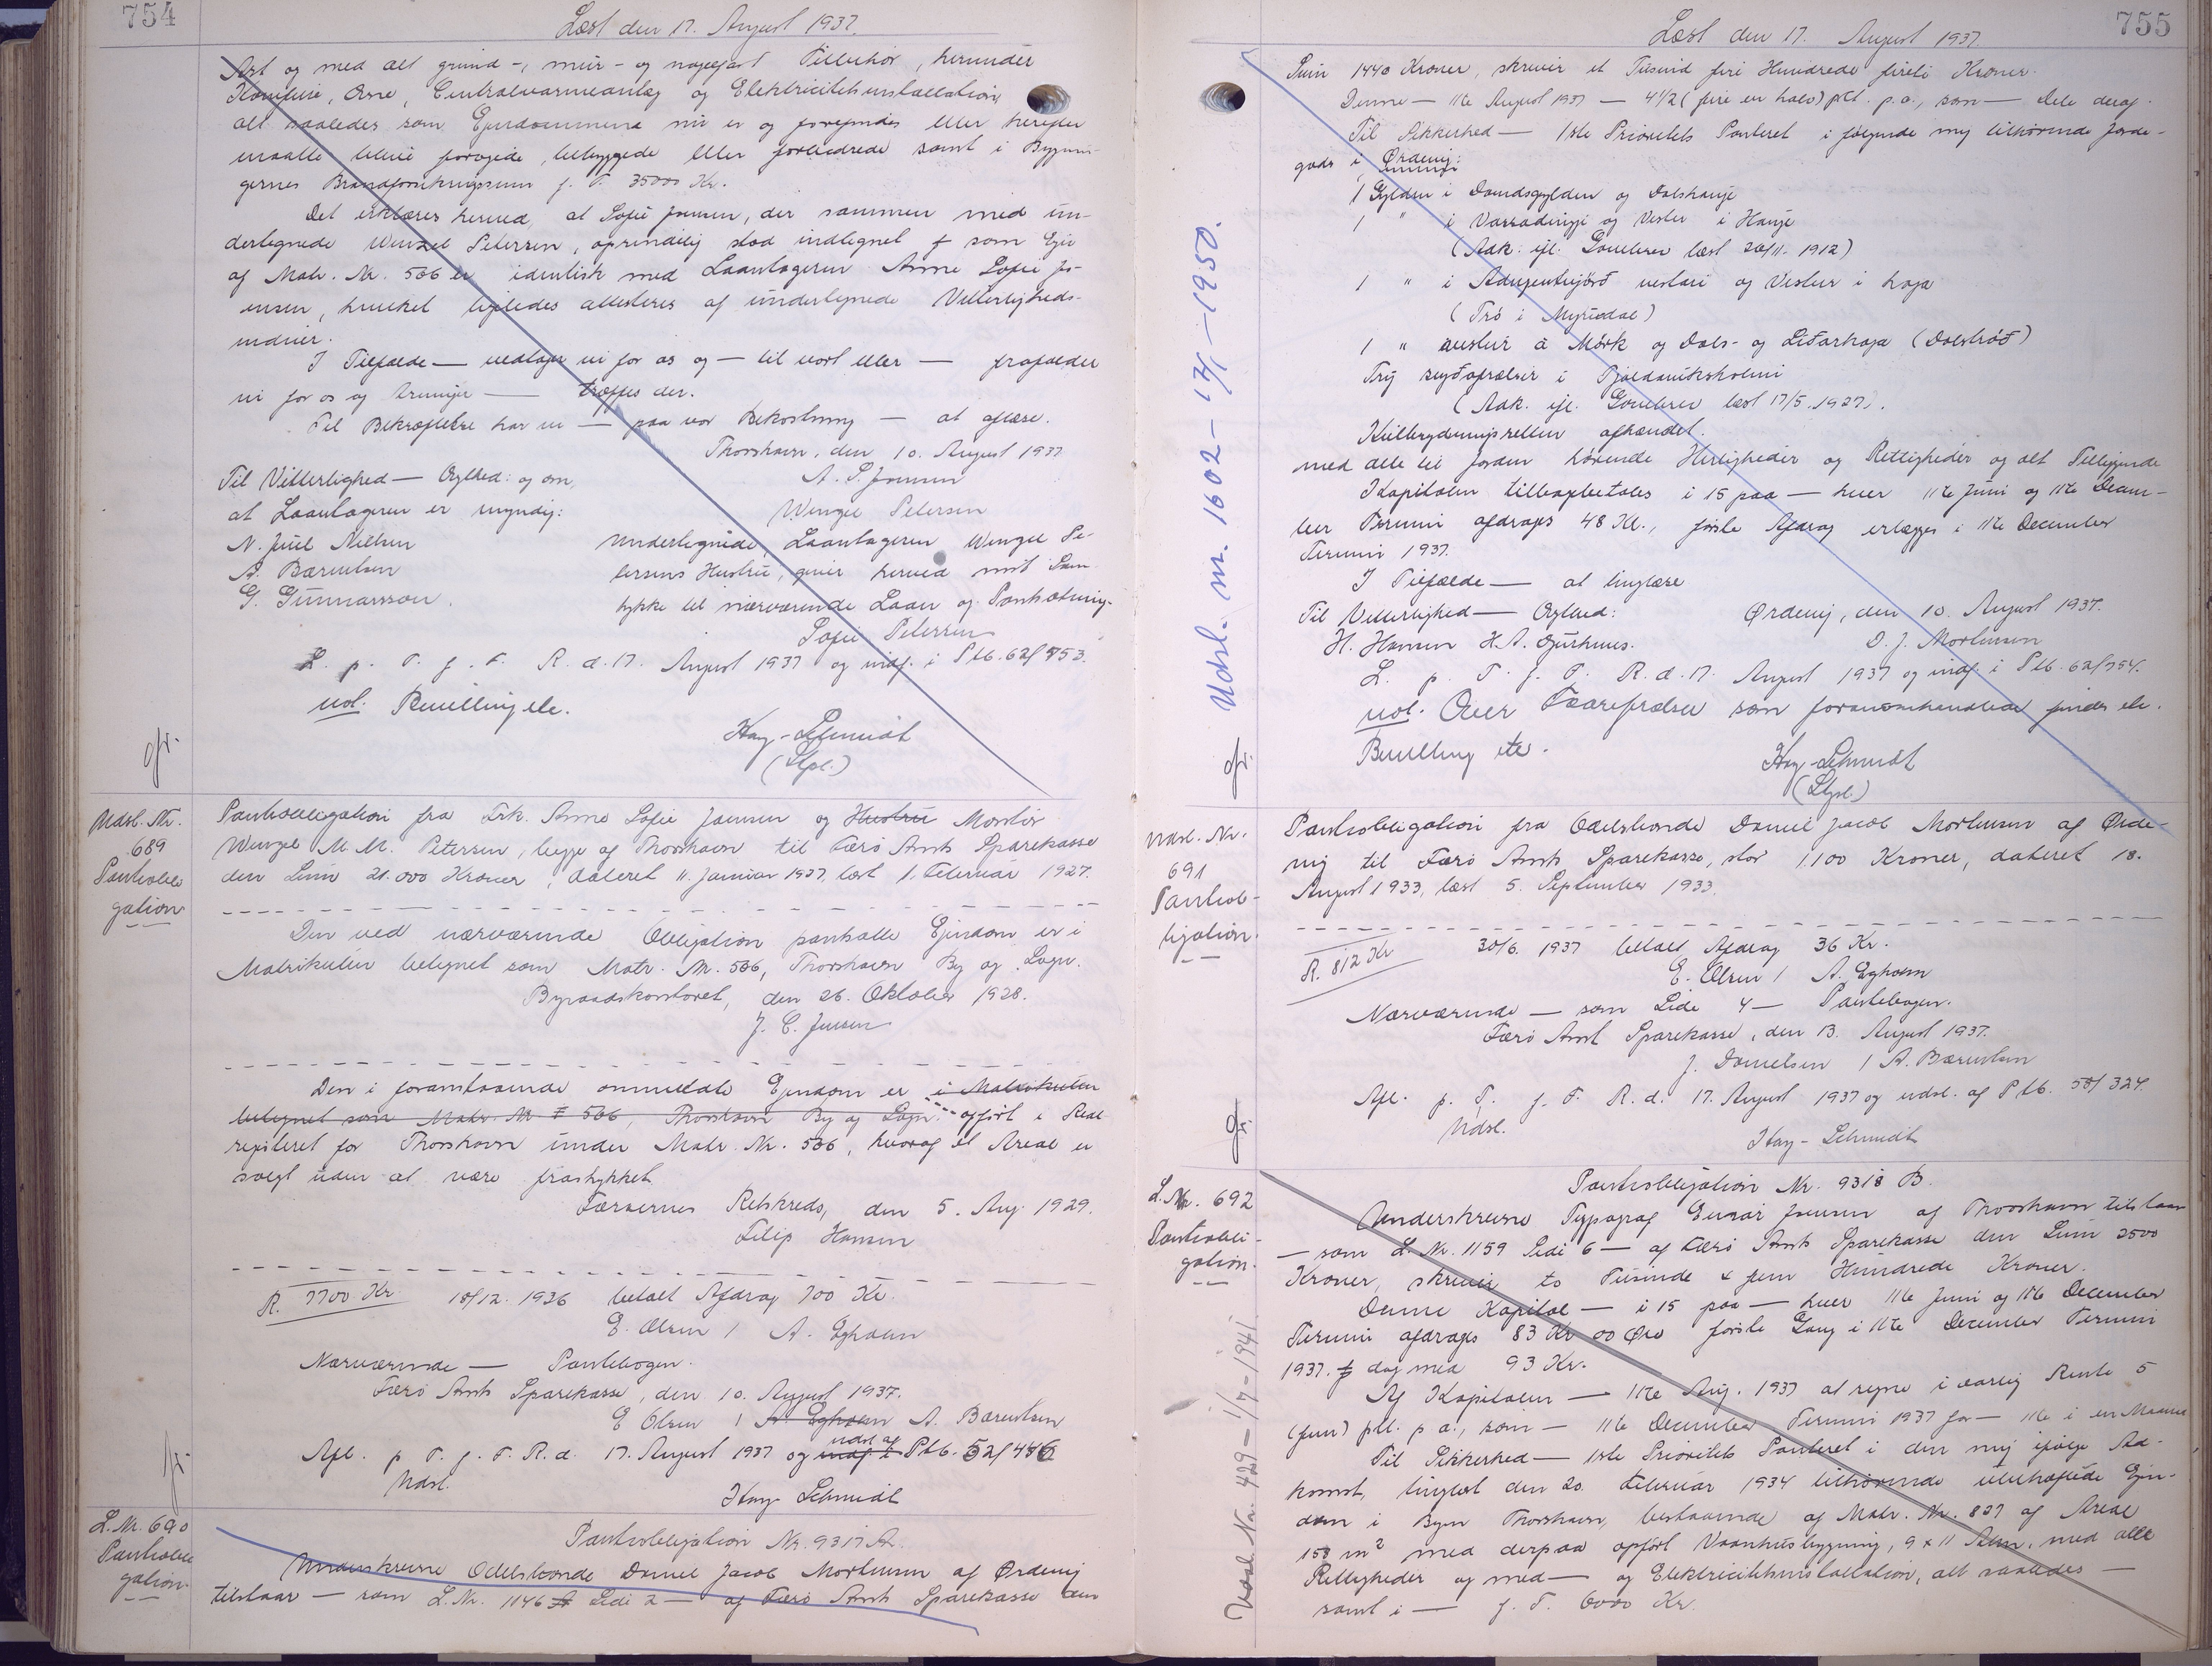 754
Læst den 17. August 1937.
Art og med alt grund-, mur- og nagelfast Tilbehør, herunder
Komfure, Ovne, Centralvarmeanlæg og Elektricitetsinstallation,
alt saaledes som Ejendommene nu er og forefindes eller herefter
maatte blive forøgede, bebyggede eller forbedrede samt i Bygnin-
gernes Brandforsikringssum f. T. 35000 Kr.
Det erklæres herved, at Sofie Joensen, der sammen med un-
dertegnede Wenzel Petersen, oprindelig stod indtegnet som Ejer
af Matr. Nr. 506 er identisk med Laantageren Anne Sofie Jo-
ensen, hvilket ligeledes attesteres af undertegnede Vitterligheds-
mænd.
I Tilfælde — vedtager vi for os og — til vort eller — frafalder
vi for os og Arvinger — træffes der.
Til Bekræftelse har vi — paa vor Bekostning — at aflæse.
Thorshavn, den 10. August 1937
Til Vitterlighed — Ægthed: og om, A. S. Joensen
at Laantageren er myndig: Wenzel Petersen
N. Juul Nielsen Undertegnede, Laantageren Wenzel Pe-
A. Bærentsen tersens Hustru, giver herved mit Sam-
G. Gunnarsson. tykke til nærværende Laan og Pantsætning.
Sofie Petersen
L. p. T. f. F. R. d. 17. August 1937 og indf. i Ptb. 62/753.
vol. Bevilling etc.
Hay-Schmidt
(Stpl.)
Udsl. Nr.
689
Pantobli
gation
Pantobligation fra Frk. Anne Sofie Joensen og Hustru Montør
Wenzel M. M. Petersen, begge af Thorshavn til Færø Amts Sparekasse
den Sum 21.000 Kroner, dateret 11. Januar 1927, læst 1. Februar 1927.
Den ved nærværende Obligation pantsatte Ejendom er i
Matrikulen betegnet som Matr. Nr. 506, Thorshavn By og Sogn.
Byraadskontoret, den 26. Oktober 1928.
J. C. Jensen
Den i foranstaaende ommeldte Ejendom er i Matrikulen
betegnet som Matr. Nr. 506, Thorshavn By og Sogn. opført i Real
registeret for Thorshavn under Matr. Nr. 506, hvoraf et Areal er
solgt uden at være frastykket.
Færøernes Retskreds, den 5. Aug. 1929.
Filip Hansen
R. 7700 Kr 18/12. 1936 betalt Afdrag 700 Kr.
E. Olsen / A. Egholm
Nærværende — Pantebogen.
Færø Amts Sparekasse, den 10. August 1937.
E Olsen / A. Egholm A. Bærentsen
Afl. p T. f. F. R. d. 17. August 1937 og indf. i udsl af Ptb. 52/486
Udsl.
Hay-Schmidt
L. Nr. 690
Pantobli
gation
Pantobligation Nr. 9317 A.
Underskrevne Odelsbonde Daniel Jacob Mortensen af Ørdevig
tilstaar — som L. Nr. 1146 Side 2 — af Færø Amts Sparekasse den
755
Læst den 17. August 1937
Sum 1440 Kroner, skriver et Tusind fire Hundrede fireti Kroner.
Denne — 11te August 1937 — 4 1/2 (fire en halv) pCt. p. a., som — Dele deraf.
Til Sikkerhed — 1ste Prioritets Panteret i følgende mig tilhørende Jorde-
gods i Ørdevig:
1 Gylden i Domdsgylden og Dalshauje
1 " i Varradingji og Vester i Hauje
(Adk. ifl. Gavebrev læst 20/11. 1912)
1 " i vestari og Vestur i haga
(Trø i Myrisdal)
1 " eustur á Mørk og Dals- og Lidarhaga (Dalstrøð)
Trý seyðaprælsir i Tjaldavikshólmi
(Adk. ifl. Gavebrev læst 17/5. 1927).
Kulbrydningsretten afhændet.
med alle til Jorden hørende Herligheder og Rettigheder og alt Tilliggende
Kapitalen tilbagebetales i 15 paa — hver 11te Juni og 11te Decem-
ber Termin afdrages 48 Kr., første Afdrag erlægges i 11te December
Termin 1937.
I Tilfælde — at tinglæse
Til Vitterlighed — Ægthed: Ørdevig, den 10. August 1937.
H. Hansen H. A. Djurhuus. D. J. Mortensen
L. p. T. f. F. R. d. 17. August 1937 og indf. i Ptb. 62/754.
vol. Over Faareprælser som foranomhandlede findes ik.
Bevilling etc.
Hay-Schmidt
(Stpl.)
Udsl. nr. 1602 - 17/1 - 1950.
Udsl. Nr.
691
Pantob-
ligation.
Pantobligation fra Odelsbonde Daniel Jacob Mortensen af Ørde-
vig til Færø Amts Sparekasse, stor 1.100 Kroner, dateret 18.
August 1933, læst 5. September 1933.
R. 812 Kr 30/6. 1937 betalt Afdrag 36 Kr.
E. Olsen / A. Egholm
Nærværende — som Side 4 — Pantebogen.
Færø Amts Sparekasse, den 13. August 1937.
J. Danielsen / A. Bærentsen
Afl. p. T. f. F. R. d. 17. August 1937 og udsl. af Ptb. 58/324.
Udsl.
Hay-Schmidt
L. Nr. 692
Pantobli-
gation.
Pantobligation Nr. 9318 B.
Underskrevne Typograf Einar Joensen af Thorshavn tilstaar
— som L. Nr. 1159 Side 6 — af Færø Amts Sparekasse den Sum 2500
Kroner, skriver to Tusinde & fem Hundrede Kroner.
Denne Kapital — i 15 paa — hver 11te Juni og 11te December
Termin afdrages 83 Kr 00 Øre første Gang i 11te December Termin
1937. dog med 93 Kr.
Af Kapitalen — 11te Aug. 1937 at regne i aarlig Rente 5
(fem) pCt. p. a., som — 11te December Termin 1937 for — 11te i en Maaned
Til Sikkerhed — 1ste Prioritets Panteret i den mig ifølge Ad-
komst, tinglæst den 20. Februar 1934 tilhørende ubehæftede Ejen-
dom i Byen Thorshavn, bestaaende af Matr. Nr. 837 af Areal
158 m² med derpaa opført Vaanhusbygning, 9 x 11 Alen, med alle
Rettigheder og med — og Elektricitetsinstallation, alt saaledes —
samt i — f. T. 6000 Kr.
Udsl. Nr. 429 - 1/7 - 1941.